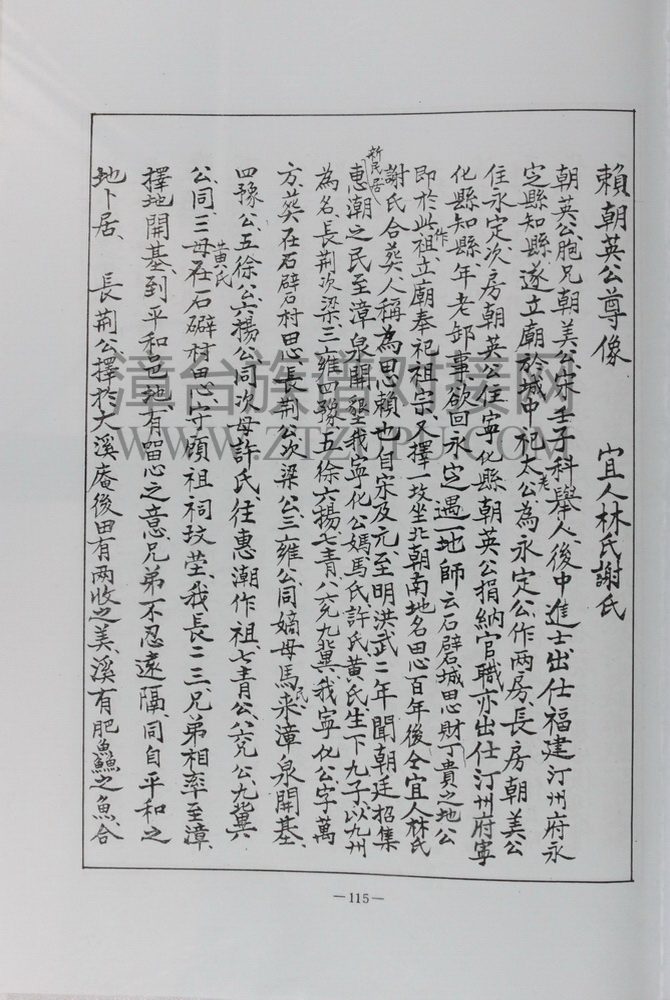 賴朝英公尊像　宜人林氏謝氏
朝英公胞兄朝美公、宋壬子科舉人、後中進士、出仕福建汀州府永
定縣知縣、遂立廟於城中祀太老公、為永定公、作兩房、長房朝美公
住永定、次房朝英公住寧化縣、朝英公捐納官職、亦出仕汀州府寧
化縣知縣、年老卸事、欲回永定、遇一地師云石壁城田心財丁貴之地、公
即於此作祖、立廟奉祀祖宗、又擇一坟坐北朝南地名田心百年後仝宜人林氏
謝氏合葬、人稱為田心賴也、自宋及元、至明洪武二年聞朝廷招集
新民居惠潮之民至漳泉開墾、我寧化公媽馬氏、許氏、黃氏、生下九子、以九州
為名、長荊次梁、三雍四豫五徐六揚七青八兗九冀、我寧化公字萬
方、葵在石壁村田心、長荊公次梁公、三雍公、同嫡母馬氏來漳泉開基、
四豫公、五徐公、六揚公、同次母許氏、往惠潮作祖、七青公、八兗公、九冀
公、同三母黃氏在石壁村田心、守頋祖祠坟塋、我長二三兄弟相率至漳、
擇地開基、到平和邑地、有留心之意、兄弟不忍遠隔、同自平和之
地卜居、　長荊公擇於大溪庵後田有兩收之美、溪有肥魚鱻之魚、合
漳台族谱对接网
WWW.ZTZUPU.COM
—115—